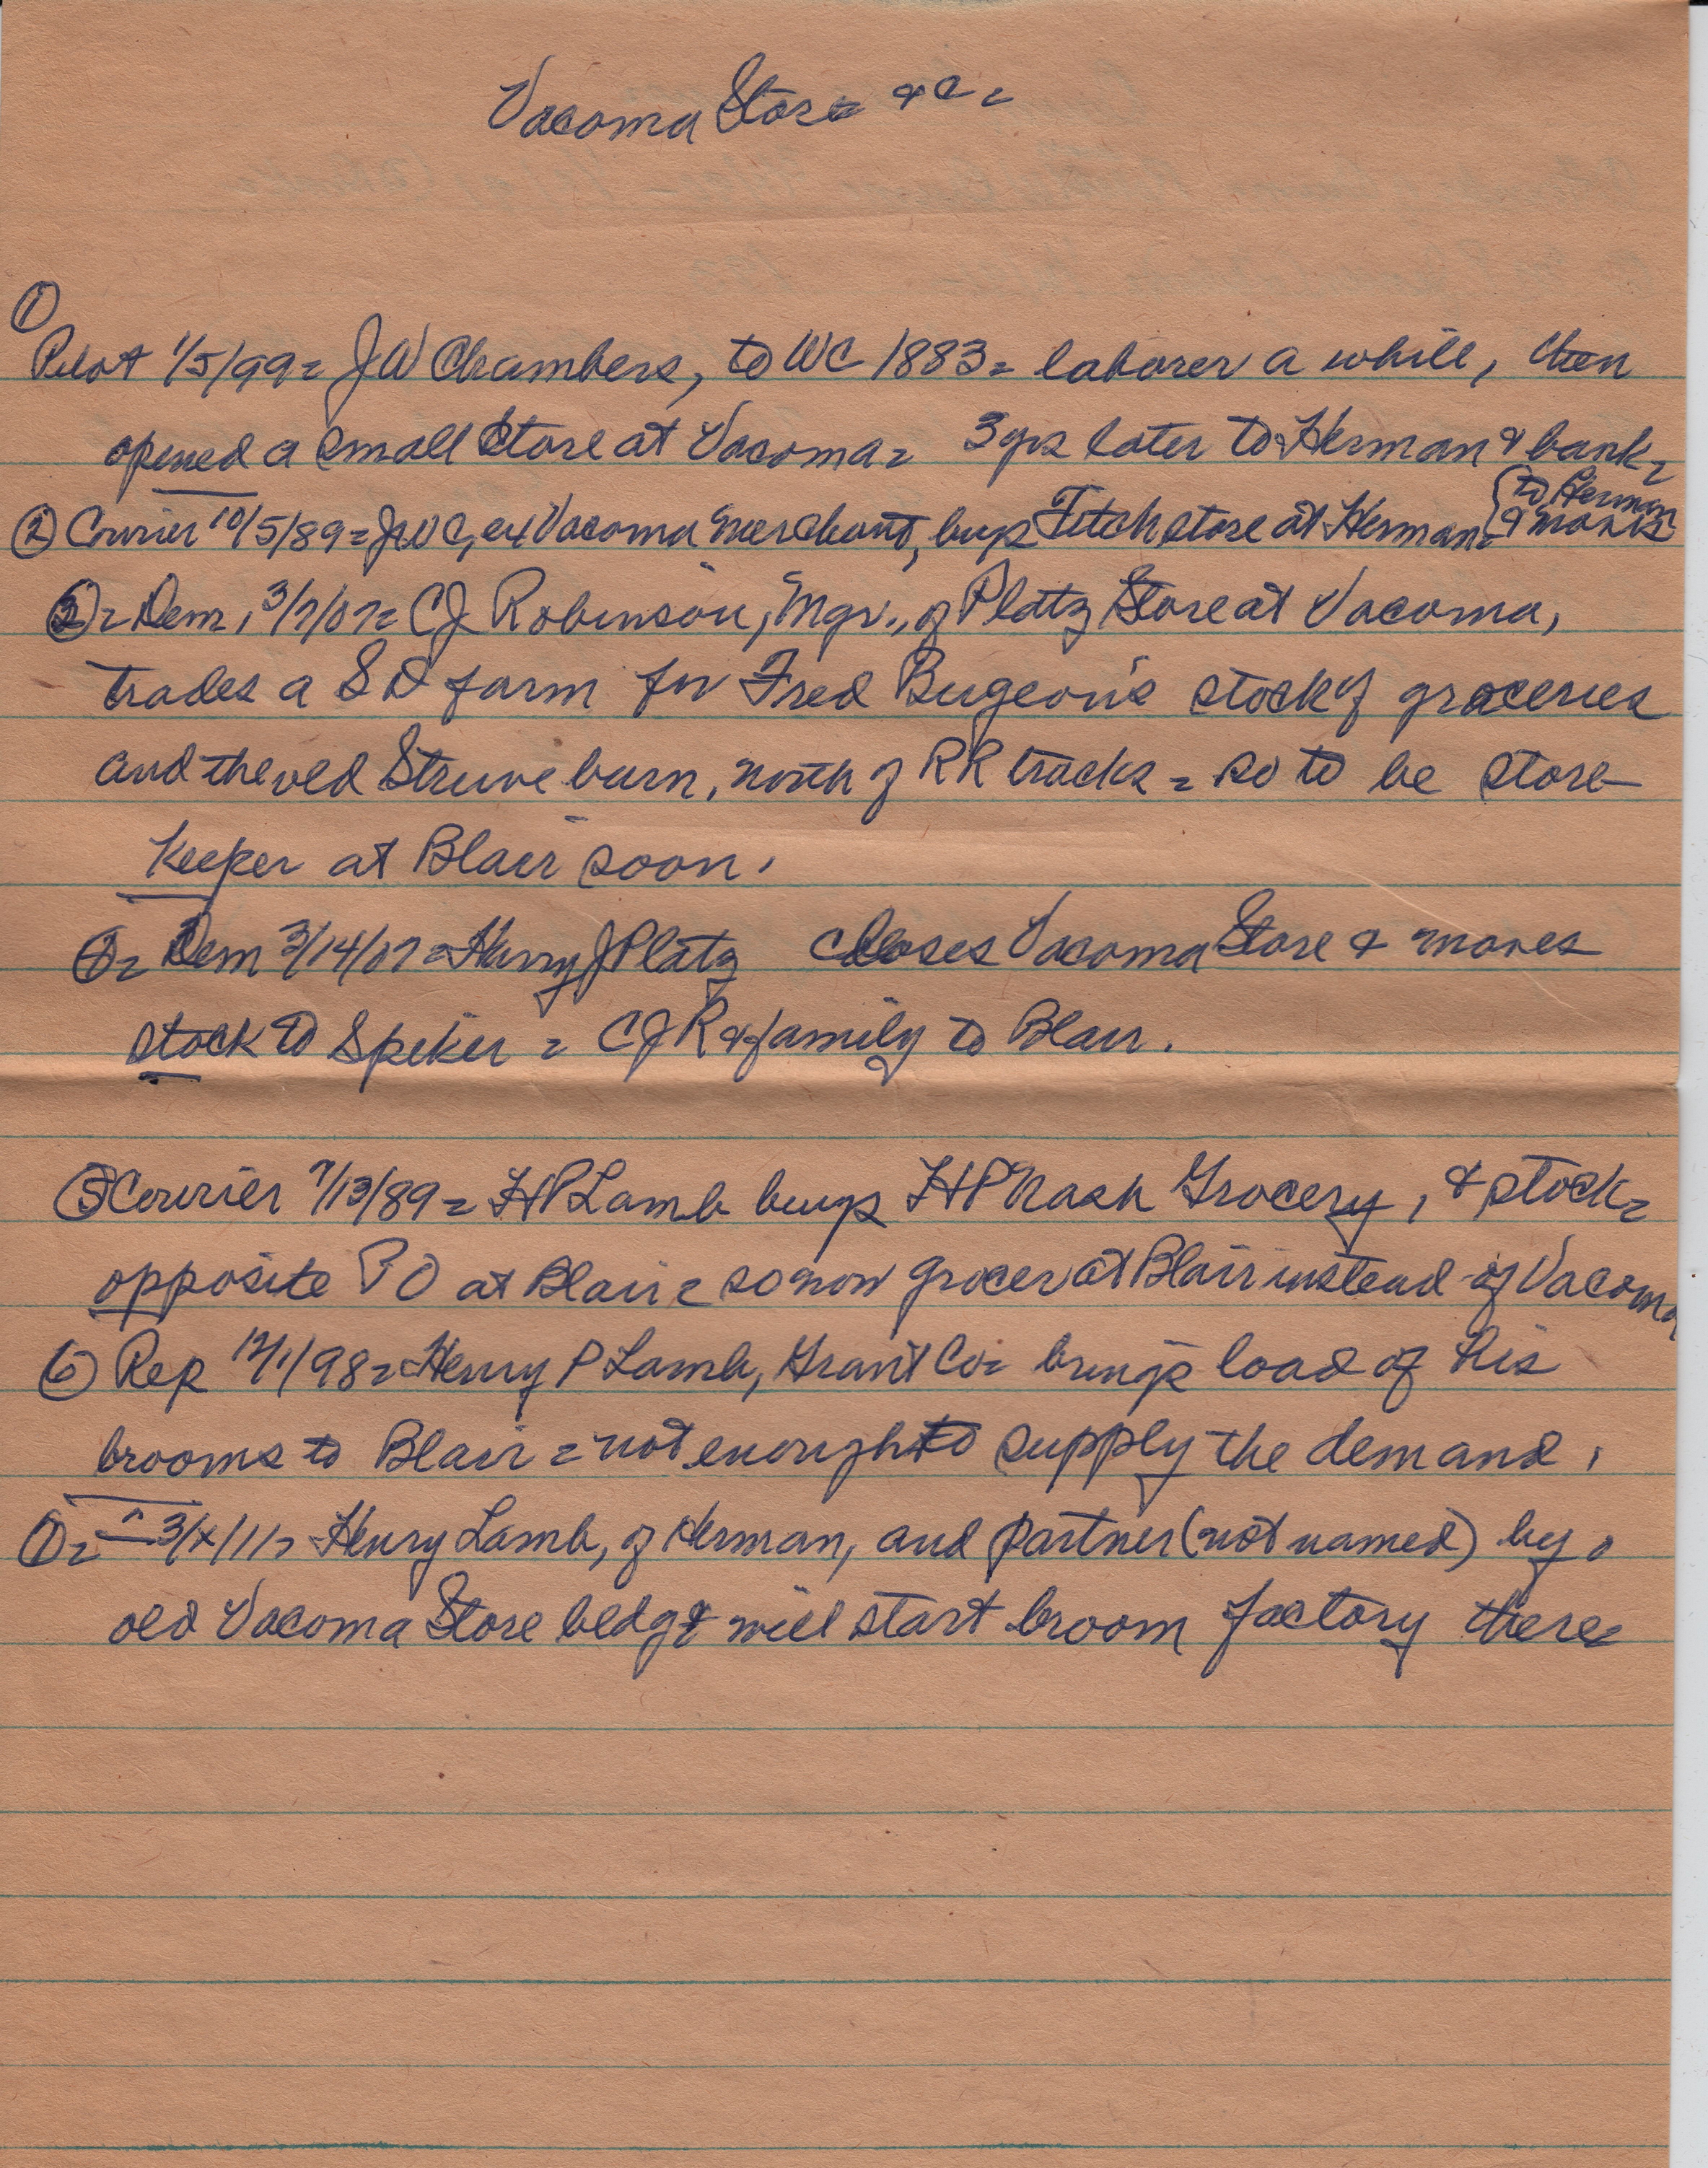 Vacoma Store &c =
①
Pilot 1/5/99 = JW Chambers, to WC 1883 = laborer a while, then
opened a small store at Vacoma = 3 yrs later to Herman & bank =
② Courier 10/5/89 = JWC, ex Vacoma merchant, buys Fitch store at Herman = {to Herman
& moves
③ = Dem, 3/7/07 = CJ Robinson, Mgr., of Platz Store at Vacoma,
trades a SD farm for Fred stock of groceries
and the old Struve barn, north of RR tracks = so to be store
keeper at Blair soon.
④ = Dem 3/14/07 = Harry J Platz closes Vacoma Store & moves
stock to Spiker = CJR & family to Blair.
⑤ Courier 7/13/89 = HP Lamb buys HP Nash Grocery, & stock =
opposite PO at Blair = so now grocer at Blair instead of Vacoma
⑥ Rep 12/1/98 = Henry P Lamb, Grant Co = brings load of his
brooms to Blair = not enough to supply the demand.
⑦ = " 3/x/11 = Henry Lamb, of Herman, and partner (not named) by
old Vacoma Store bldg & will start broom factory there =